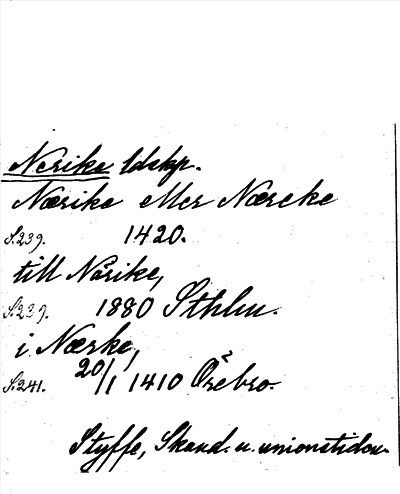 Nerike ldskp.
Nærike eller Næreke
S.239. 1420.
till Nårike,
S.239. 1880 Sthlm.
i Nærke,
S.241. 20/1 1410 Örebro.
Styffe, Skand. u. unionstiden.